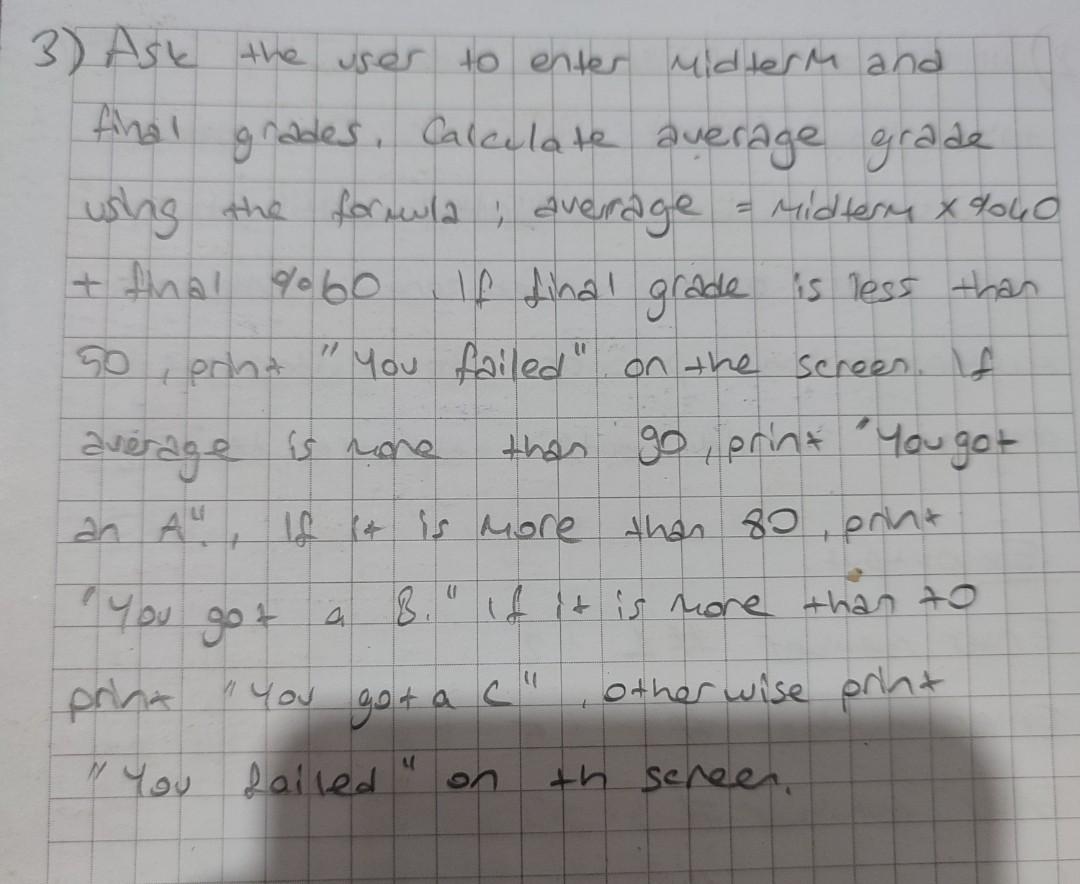 3) Ask the user to enter Midterm and
final grades. Calculate average grade
using the formula; average = Midterm x %40
+ final %60. If final grade is less than
50, print "You failed" on the screen. If
average is more than 90, print "You got
an A"., If it is more than 80, print
"You got a B." If it is more than 70
print "You got a C", otherwise print
"You failed" on th screen.